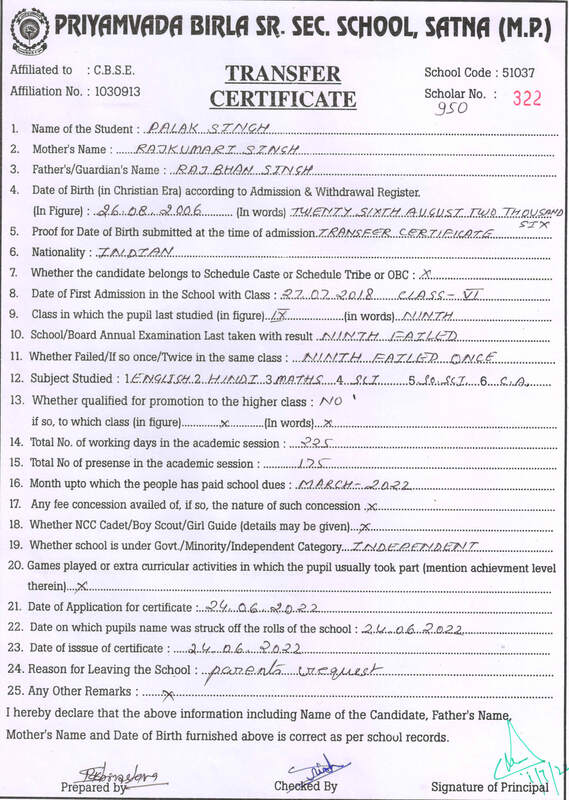 PRIYAMVADA BIRLA SR. SEC. SCHOOL, SATNA (M.P.)
Affiliated to : C.B.S.E.
Affiliation No. : 1030913
TRANSFER
CERTIFICATE
School Code : 51037
Scholar No. : 322
950
1. Name of the Student : PALAK SINGH
2. Mother's Name : RAJKUMARI SINGH
3. Father's/Guardian's Name : RAJBHAN SINGH
4. Date of Birth (in Christian Era) according to Admission & Withdrawal Register.
(In Figure) : 26.08.2006 (In words) TWENTY SIXTH AUGUST TWO THOUSAND
SIX
5. Proof for Date of Birth submitted at the time of admission TRANSFER CERTIFICATE
6. Nationality : INDIAN
7. Whether the candidate belongs to Schedule Caste or Schedule Tribe or OBC : X
8. Date of First Admission in the School with Class : 27.07.2018 CLASS-VI
9. Class in which the pupil last studied (in figure) IX (in words) NINTH
10. School/Board Annual Examination Last taken with result NINTH FAILED
11. Whether Failed/If so once/Twice in the same class : NINTH FAILED ONCE
12. Subject Studied : 1 ENGLISH 2. HINDI 3 MATHS 4. SCI 5. SO. SCI. 6. C.A.
13. Whether qualified for promotion to the higher class : NO
if so, to which class (in figure) x (In words) x
14. Total No. of working days in the academic session : 225
15. Total No of presense in the academic session : 175
16. Month upto which the people has paid school dues : MARCH-2022
17. Any fee concession availed of, if so, the nature of such concession x
18. Whether NCC Cadet/Boy Scout/Girl Guide (details may be given) x
19. Whether school is under Govt./Minority/Independent Category INDEPENDENT
20. Games played or extra curricular activities in which the pupil usually took part (mention achievment level
therein) x
21. Date of Application for certificate : 24.06.2022
22. Date on which pupils name was struck off the rolls of the school : 24.06.2022
23. Date of isssue of certificate : 24.06.2022
24. Reason for Leaving the School : parents request
25. Any Other Remarks : x
I hereby declare that the above information including Name of the Candidate, Father's Name,
Mother's Name and Date of Birth furnished above is correct as per school records.
Prepared by
Checked By
Signature of Principal